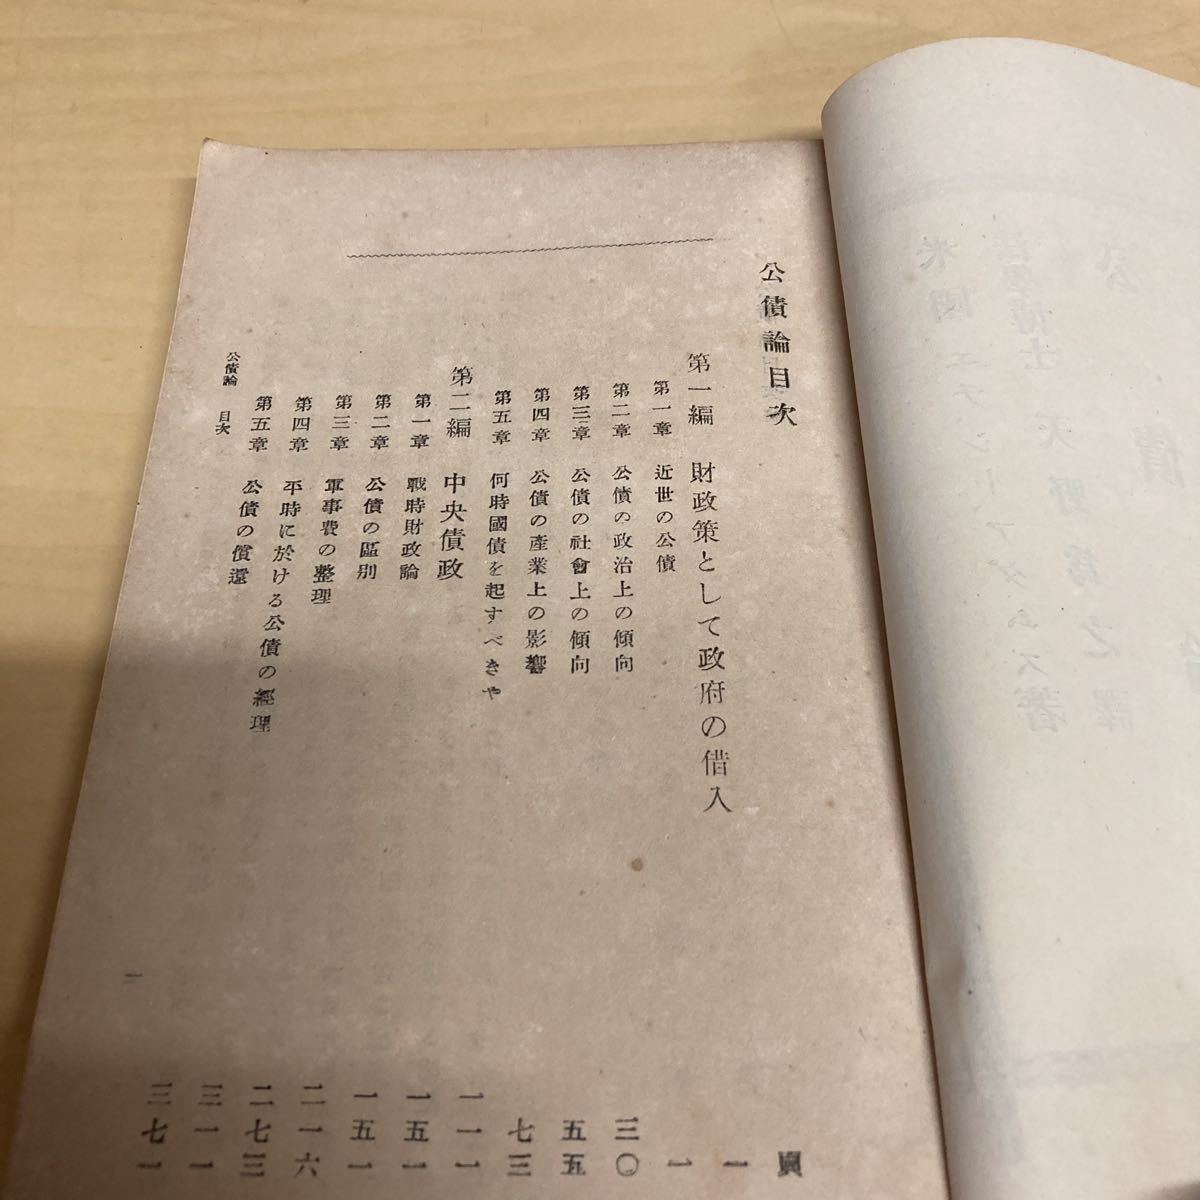 公債論目次
頁
第一編 財政策として政府の借入 一
第一章 近世の公債 一
第二章 公債の政治上の傾向 三〇
第三章 公債の社會上の傾向 五五
第四章 公債の產業上の影響 七三
第五章 何時國債を起すべきや 一一一
第二編 中央債政 一五一
第一章 戰時財政論 一五一
第二章 公債の區別 二一六
第三章 軍事費の整理 二七三
第四章 平時に於ける公債の經理 三一一
第五章 公債の償還 三七一
公債論 目次
一